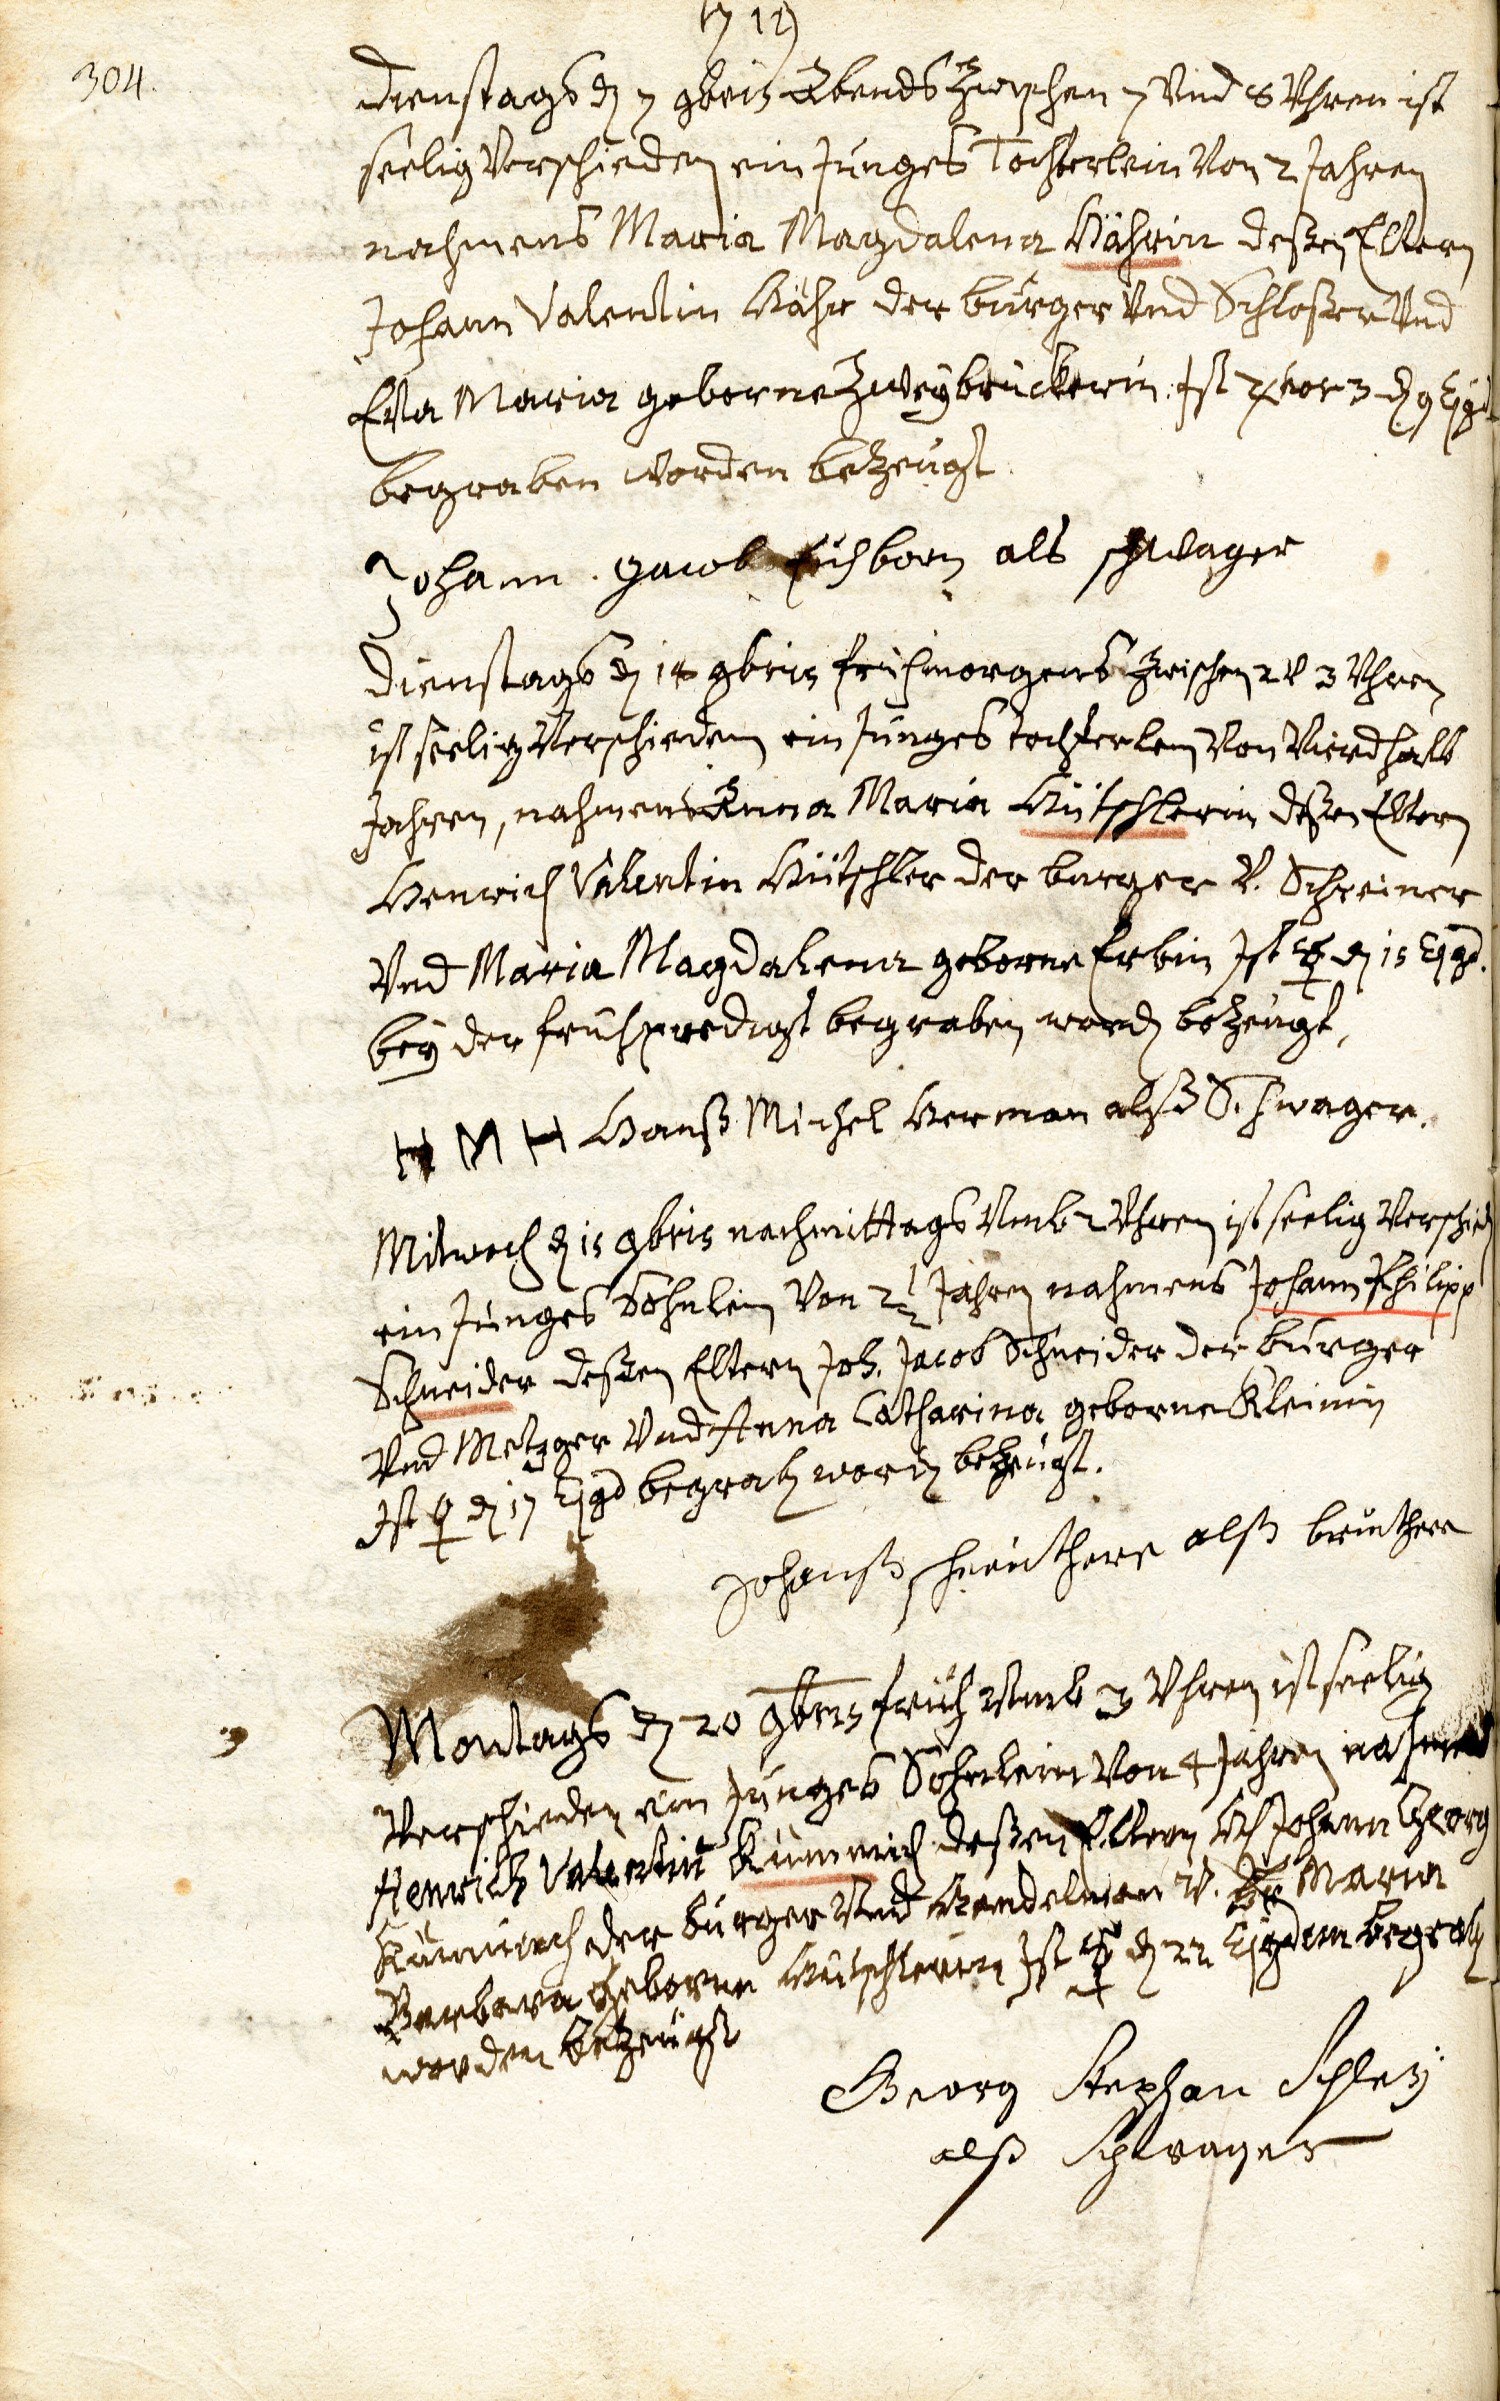 304.
Dienstags d 7 9bris Abends Zwischen 7 Vnd 8 Vhren ist
seelig Verschieden ein Junges Tochterlein Von 2 Jahren
nahmens Maria Magdalena Bährin deßen Eltern
Johann Valentin Bähr der burger Vnd Schloßer Vnd
Eva Maria geborne Zweybrückerin. Ist 3 d 9 Ejgd
begraben worden betzeugt
Johann Jacob Eichborn als schwager
Dienstags d 14 9bris frühmorgens Zwischen 2 V 3 Vhren
ist seelig Verschieden ein Junges tochterlein Von Vierdhalb
Jahren, nahmens Anna Maria Hütschlerin deßen Eltern
Henrich Valentin Hütschler der burger V. Schreiner
Vnd Maria Magdalena geborne Erbin Ist ☿ d 15 Ejgd.
bey der frühpredigt begraben word betzeugt,
H M H Hanß Michel Herman alß Schwager.
Mitwoch d 15 9bris nachmittags Vmb 2 Vhren ist seelig Verschied
ein Junges Söhnlein Von 2½ Jahren nahmens Johann Philipp
Schneider deßen Eltern Joh. Jacob Schneider der burger
Vnd Metzger Vnd Anna Catharina geborne Kleinin
Ist ♀ d 17 Ejgd begrab word betzeugt.
Johanß alß
Montags d 20 9bris früh Vmb 3 Vhren ist seelig
Verschieden ein Junges Söhnlein Von 4 Jahren nahmens
Henrich Valentin Kümmich deßen Eltern H Johann Georg
Kümmich der burger Vnd Handelman V. Fr Maria
Barbara geborne Hütschlerin Ist ☿ d 22 Ejgdem begrab
worden betzeugt
Georg Stephan Schley
alß Schwager